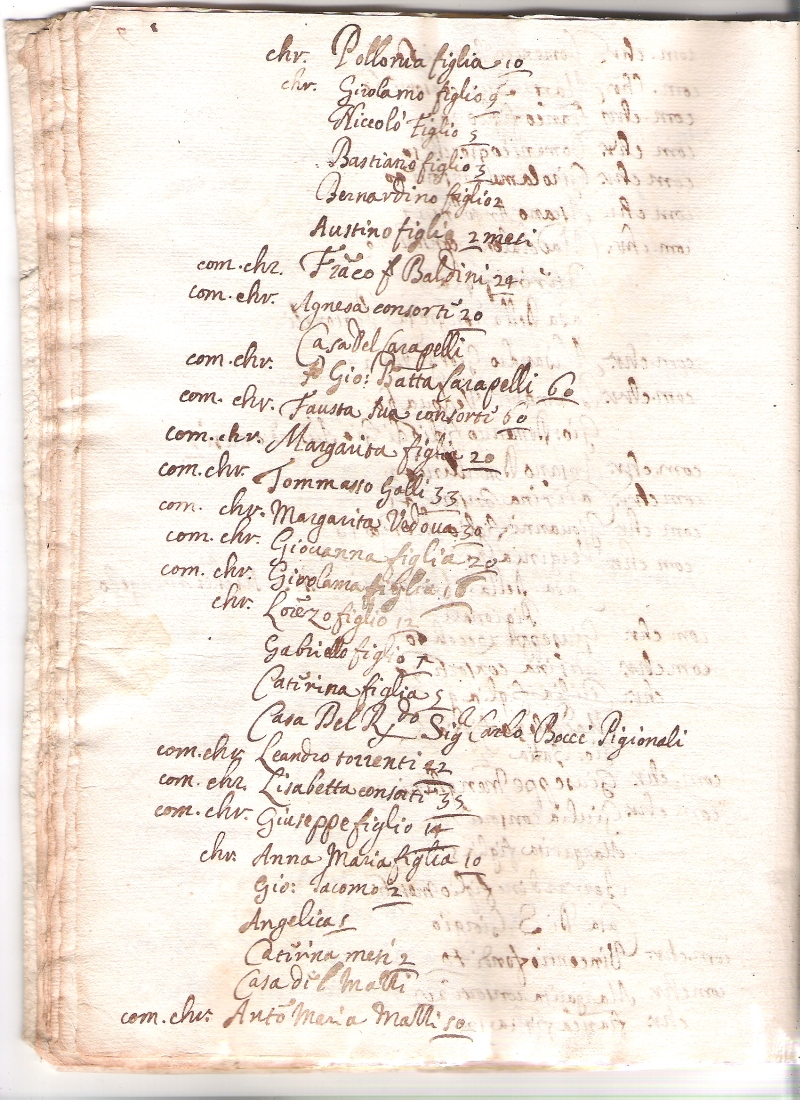 chr. Pollonia figlia 10
chr. Girolamo figlio 9
Niccolò figlio 5
Bastiano figlio 3
Bernardino figlio 2
Austino figlio 2 mesi
com. chr. Frãco f Baldini 24
com. chr. Agnesa consorti 20
Casa Del Carapelli
com. chr. Gio: Batta Carapelli 60
com. chr. Fausta sua consorti 60
com. chr. Margarita figlia 20
com. chr. Tommasso Galli 33
com. chr. Margarita Vedova 30
com. chr. Giovanna figlia 20
com. chr. Girolama figlia 16
chr. Lorẽzo figlio 12
Gabriello figlio 7
Catirina figlia 5
Casa Del R.do Sig. Carlo Bocce Pigionali
com. chr. Leandro torrenti 42
com. chr. Lisabetta consorti 35
com. chr. Giuseppe figlio 14
chr. Anna Maria figlia 10
Gio: Iacomo 2
Angelica 5
Catirina mesi 2
Casa di Matti
com. chr. Anto Maria Matti 50